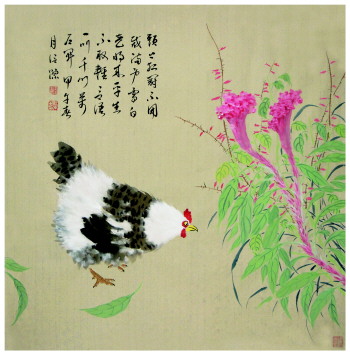 頭上紅冠不用
裁滿身雪白
走將來平生
不敢輕言語
一叫千門萬
戶開甲午春
月